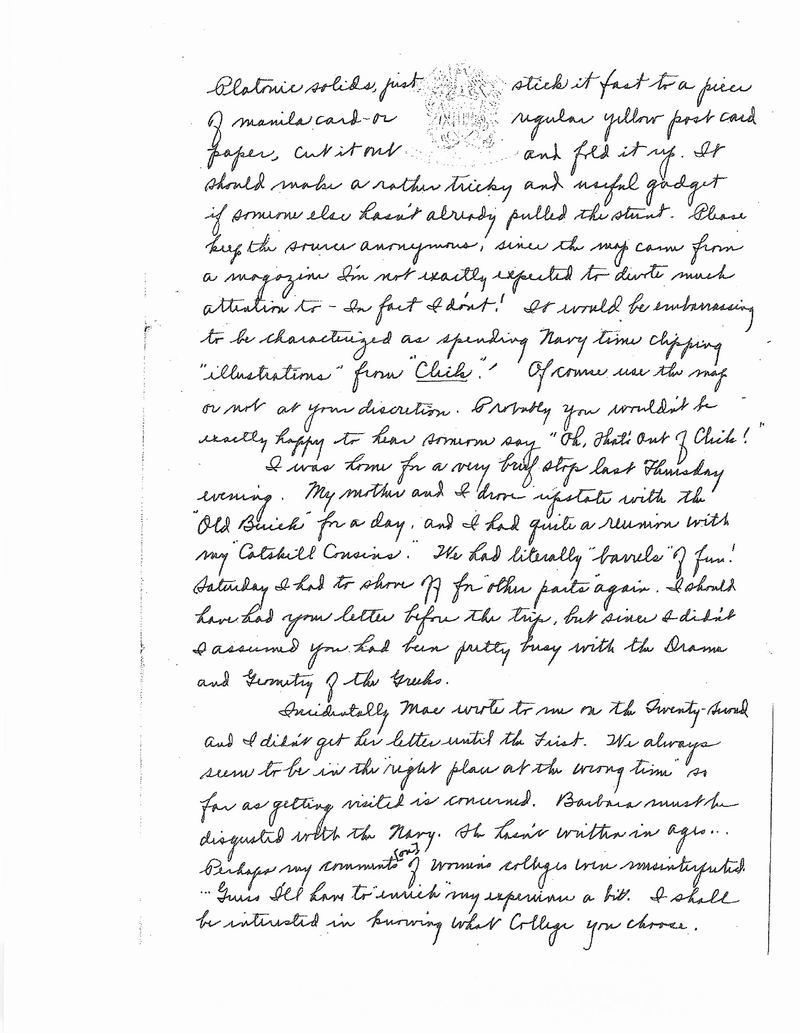 Platonic solids, just stick it fast to a piece
of manila card - or regular yellow post card
paper, cut it out and fold it up. It
should make a rather tricky and useful gadget
if someone else hasn't already pulled the stunt. Please
keep the source anonymous, since the map came from
a magazine I'm not exactly expected to devote much
attention to - In fact I don't! It would be embarrassing
to be characterized as spending Navy time clipping
"illustrations" from "Click"! Of course use the map
or not at your discretion. Probably you wouldn't be
exactly happy to hear someone say "Oh, that's out of Click!"
I was home for a very brief stop last Thursday
evening. My mother and I drove upstate with the
"Old Buick" for a day, and I had quite a reunion with
my "Catskill Cousins." We had literally "barrels" of fun!
Saturday I had to shove off for "other parts" again. I should
have had your letter before the trip, but since I didn't
I assumed you had been pretty busy with the Drama
and Geometry of the Greeks.
Incidentally Mae wrote to me on the Twenty-Second
and I didn't get her letter until the First. We always
seem to be in the "right place at the wrong time" so
far as getting visited is concerned. Barbara must be
disgusted with the Navy. She hasn't written in ages...
Perhaps my comments (on?) of women's colleges were misinterpreted.
... Guess I'll have to "enrich" my experience a bit. I shall
be interested in knowing what College you choose.